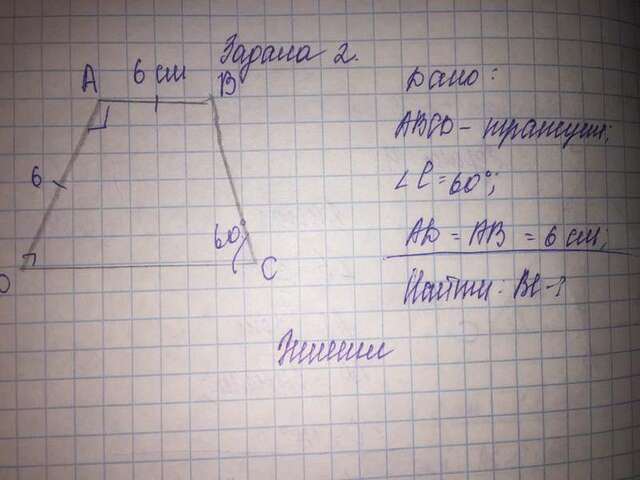 Задача 2.
A 6 см B
6
D 60° C
Дано:
ABCD - трапеция;
∠C = 60°;
AD = AB = 6 см;
Найти: BC - ?
Решение